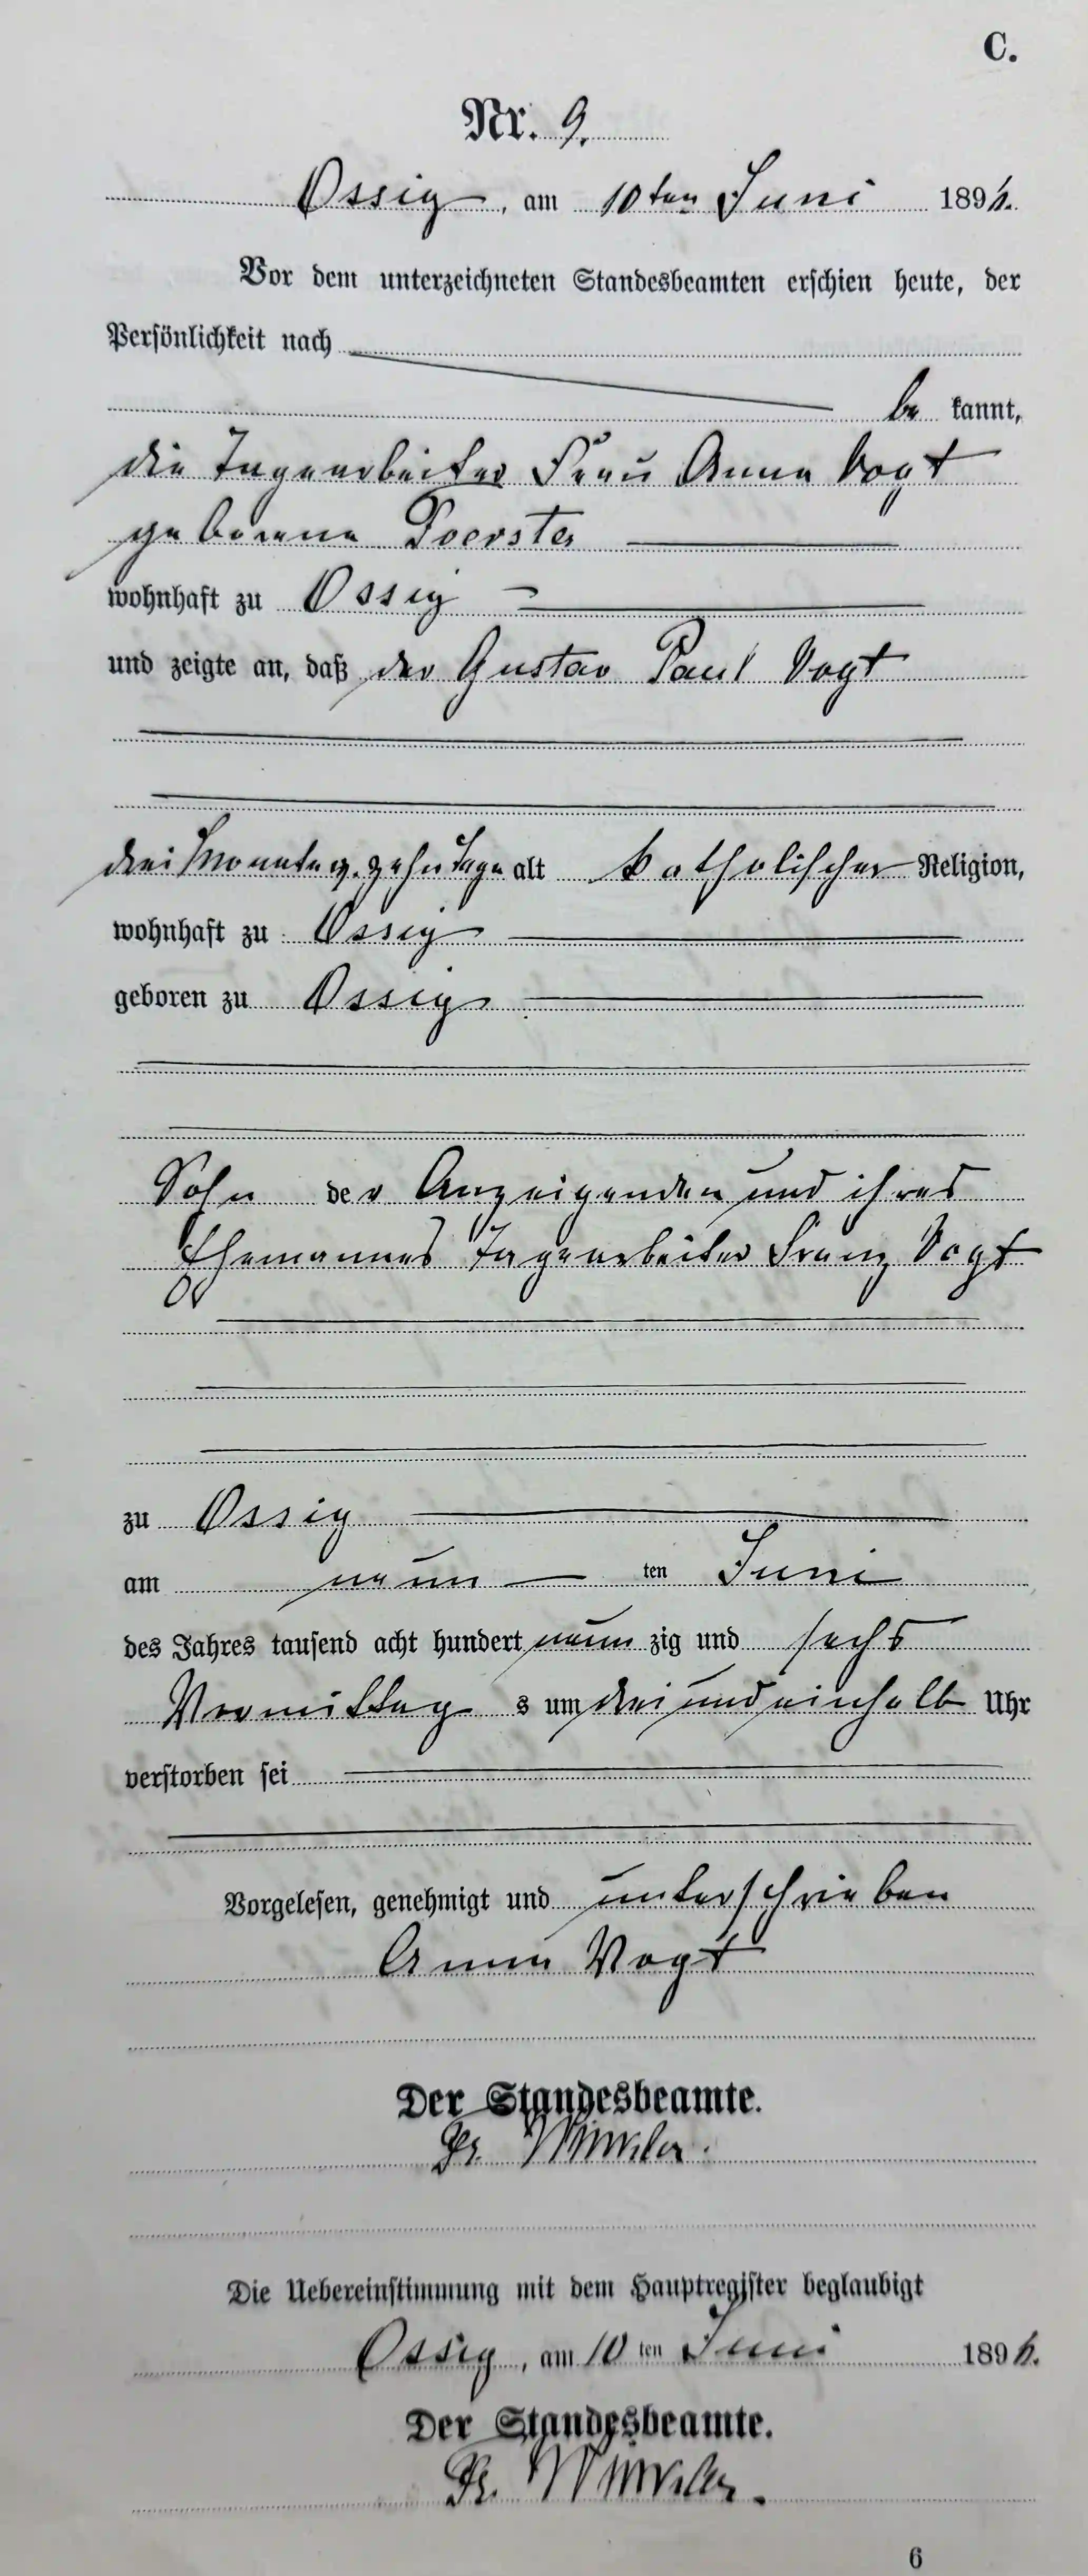 C.
Nr. 9.
Ossig, am 10ten Juni 1896.
Vor dem unterzeichneten Standesbeamten erschien heute, der
Persönlichkeit nach
be kannt,
die Tagearbeiter Frau Anna Vogt
geborene Foerster
wohnhaft zu Ossig
und zeigte an, daß der Gustav Paul Vogt
drei Monate u. zehn Tage alt katholischer Religion,
wohnhaft zu Ossig
geboren zu Ossig
Sohn der Anzeigenden und ihres
Ehemannes Tagearbeiter Franz Vogt
zu Ossig
am neun ten Juni
des Jahres tausend acht hundert neun zig und sechs
Vormittag s um drei und einhalb Uhr
verstorben sei
Vorgelesen, genehmigt und unterschrieben
Anna Vogt
Der Standesbeamte.
Fr. Winkler.
Die Uebereinstimmung mit dem Hauptregister beglaubigt
Ossig, am 10 ten Juni 1896.
Der Standesbeamte.
Fr. Winkler.
6